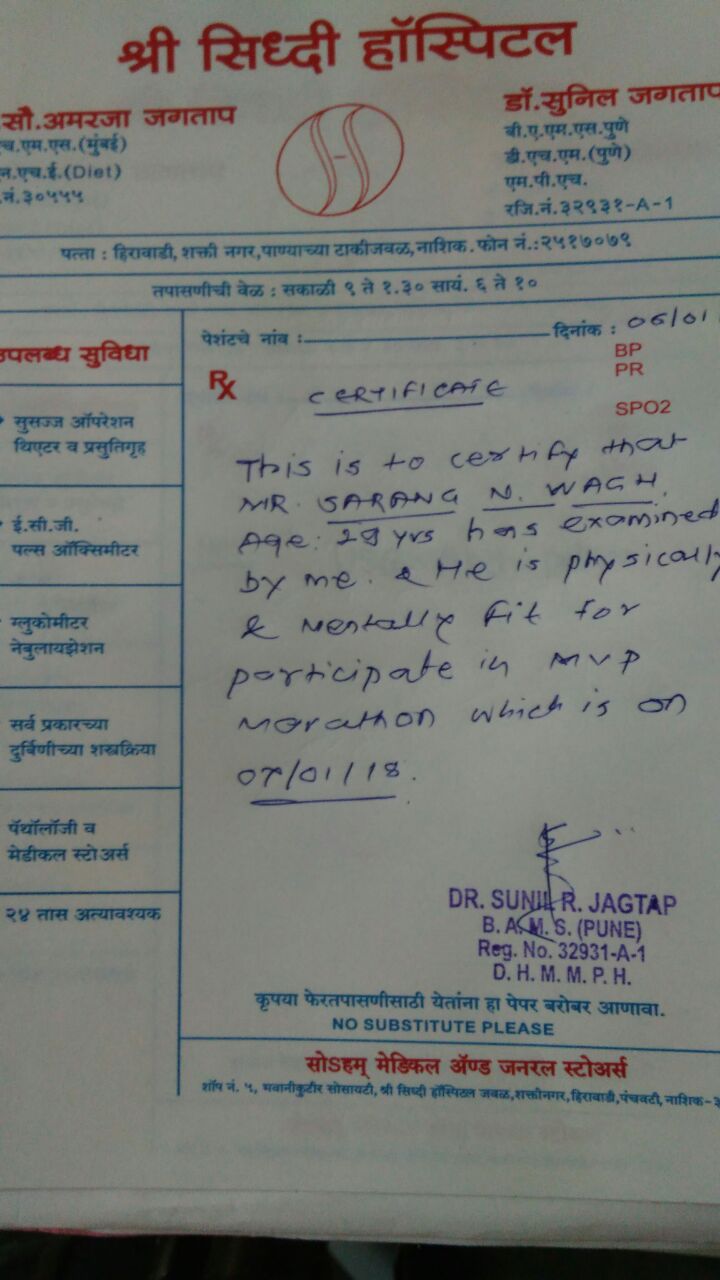 श्री सिध्दी हॉस्पिटल
सौ.अमरजा जगताप
एच.एम.एस.(मुंबई)
एन.एच.ई.(Diet)
नं.३०५५५
डॉ.सुनिल जगताप
बी.ए.एम.एस.पुणे
डी.एच.एम.(पुणे)
एम.पी.एच.
रजि.नं.३२९३१-A-1
पत्ता : हिरावाडी, शक्ती नगर,पाण्याच्या टाकीजवळ,नाशिक. फोन नं.:२५१७०७९
तपासणीची वेळ : सकाळी ९ ते १.३० सायं. ६ ते १०
उपलब्ध सुविधा
सुसज्ज ऑपरेशन
थिएटर व प्रसुतिगृह
ई.सी.जी.
पल्स ऑक्सिमीटर
ग्लुकोमीटर
नेबुलायझेशन
सर्व प्रकारच्या
दुर्बिणीच्या शस्त्रक्रिया
पॅथॉलॉजी व
मेडीकल स्टोअर्स
२४ तास अत्यावश्यक
पेशंटचे नांव : दिनांक : 06/01
BP
PR
SPO2
Rx
CERTIFICATE
This is to certify that
MR. SARANG N. WAGH
Age: 29 yrs has examined
by me. & He is physically
& Mentally fit for
participate in MVP
Marathon which is on
07/01/18.
DR. SUNIL R. JAGTAP
B. A. M. S. (PUNE)
Reg. No. 32931-A-1
D. H. M. M. P. H.
कृपया फेरतपासणीसाठी येतांना हा पेपर बरोबर आणावा.
NO SUBSTITUTE PLEASE
सोऽहम् मेडिकल ॲण्ड जनरल स्टोअर्स
शॉप नं. ५, भवानीकुटीर सोसायटी, श्री सिध्दी हॉस्पिटल जवळ,शक्तीनगर,हिरावाडी,पंचवटी, नाशिक-३